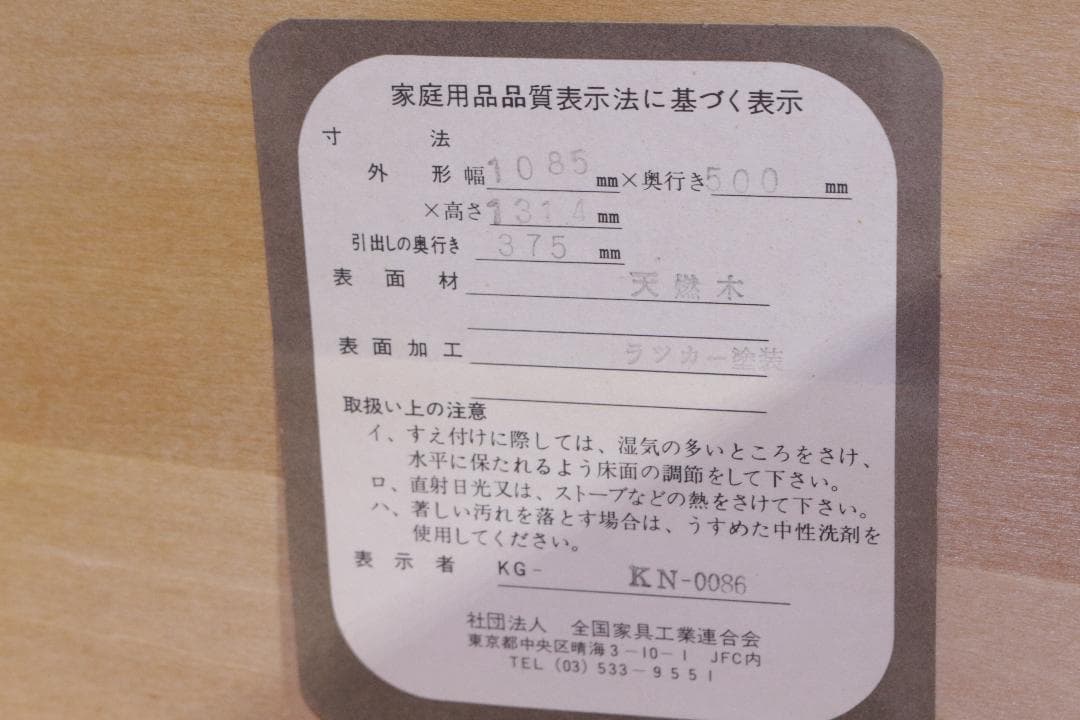 家庭用品品質表示法に基づく表示
寸法
外形 幅1085mm×奥行き500mm
×高さ1314mm
引出しの奥行き 375mm
表面材 天燃木
表面加工 ラッカー塗装
取扱い上の注意
イ、すえ付けに際しては、湿気の多いところをさけ、
水平に保たれるよう床面の調節をして下さい。
ロ、直射日光又は、ストーブなどの熱をさけて下さい。
ハ、著しい汚れを落とす場合は、うすめた中性洗剤を
使用してください。
表示者 KG- KN-0086
社団法人 全国家具工業連合会
東京都中央区晴海3-10-1 JFC内
TEL (03) 533-9551